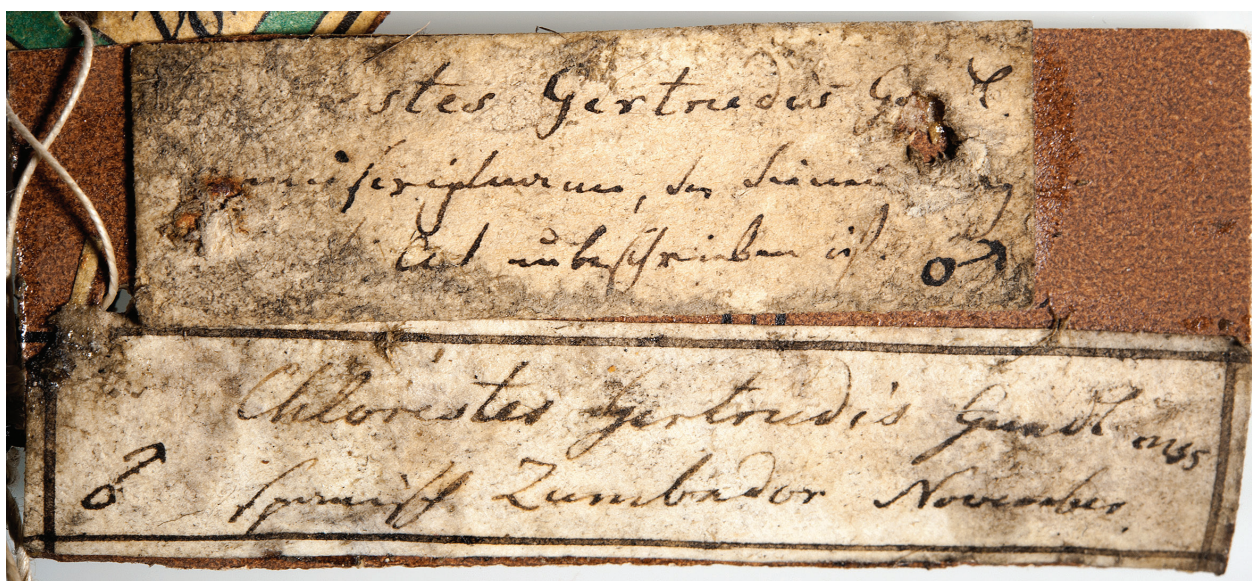 estes Gertrudis Gundl
manuscriptorum, da diese
Art unbeschrieben ist. ♂
Chlorestes Gertrudis Gundl mss
♂ spanisch Zumbador November.